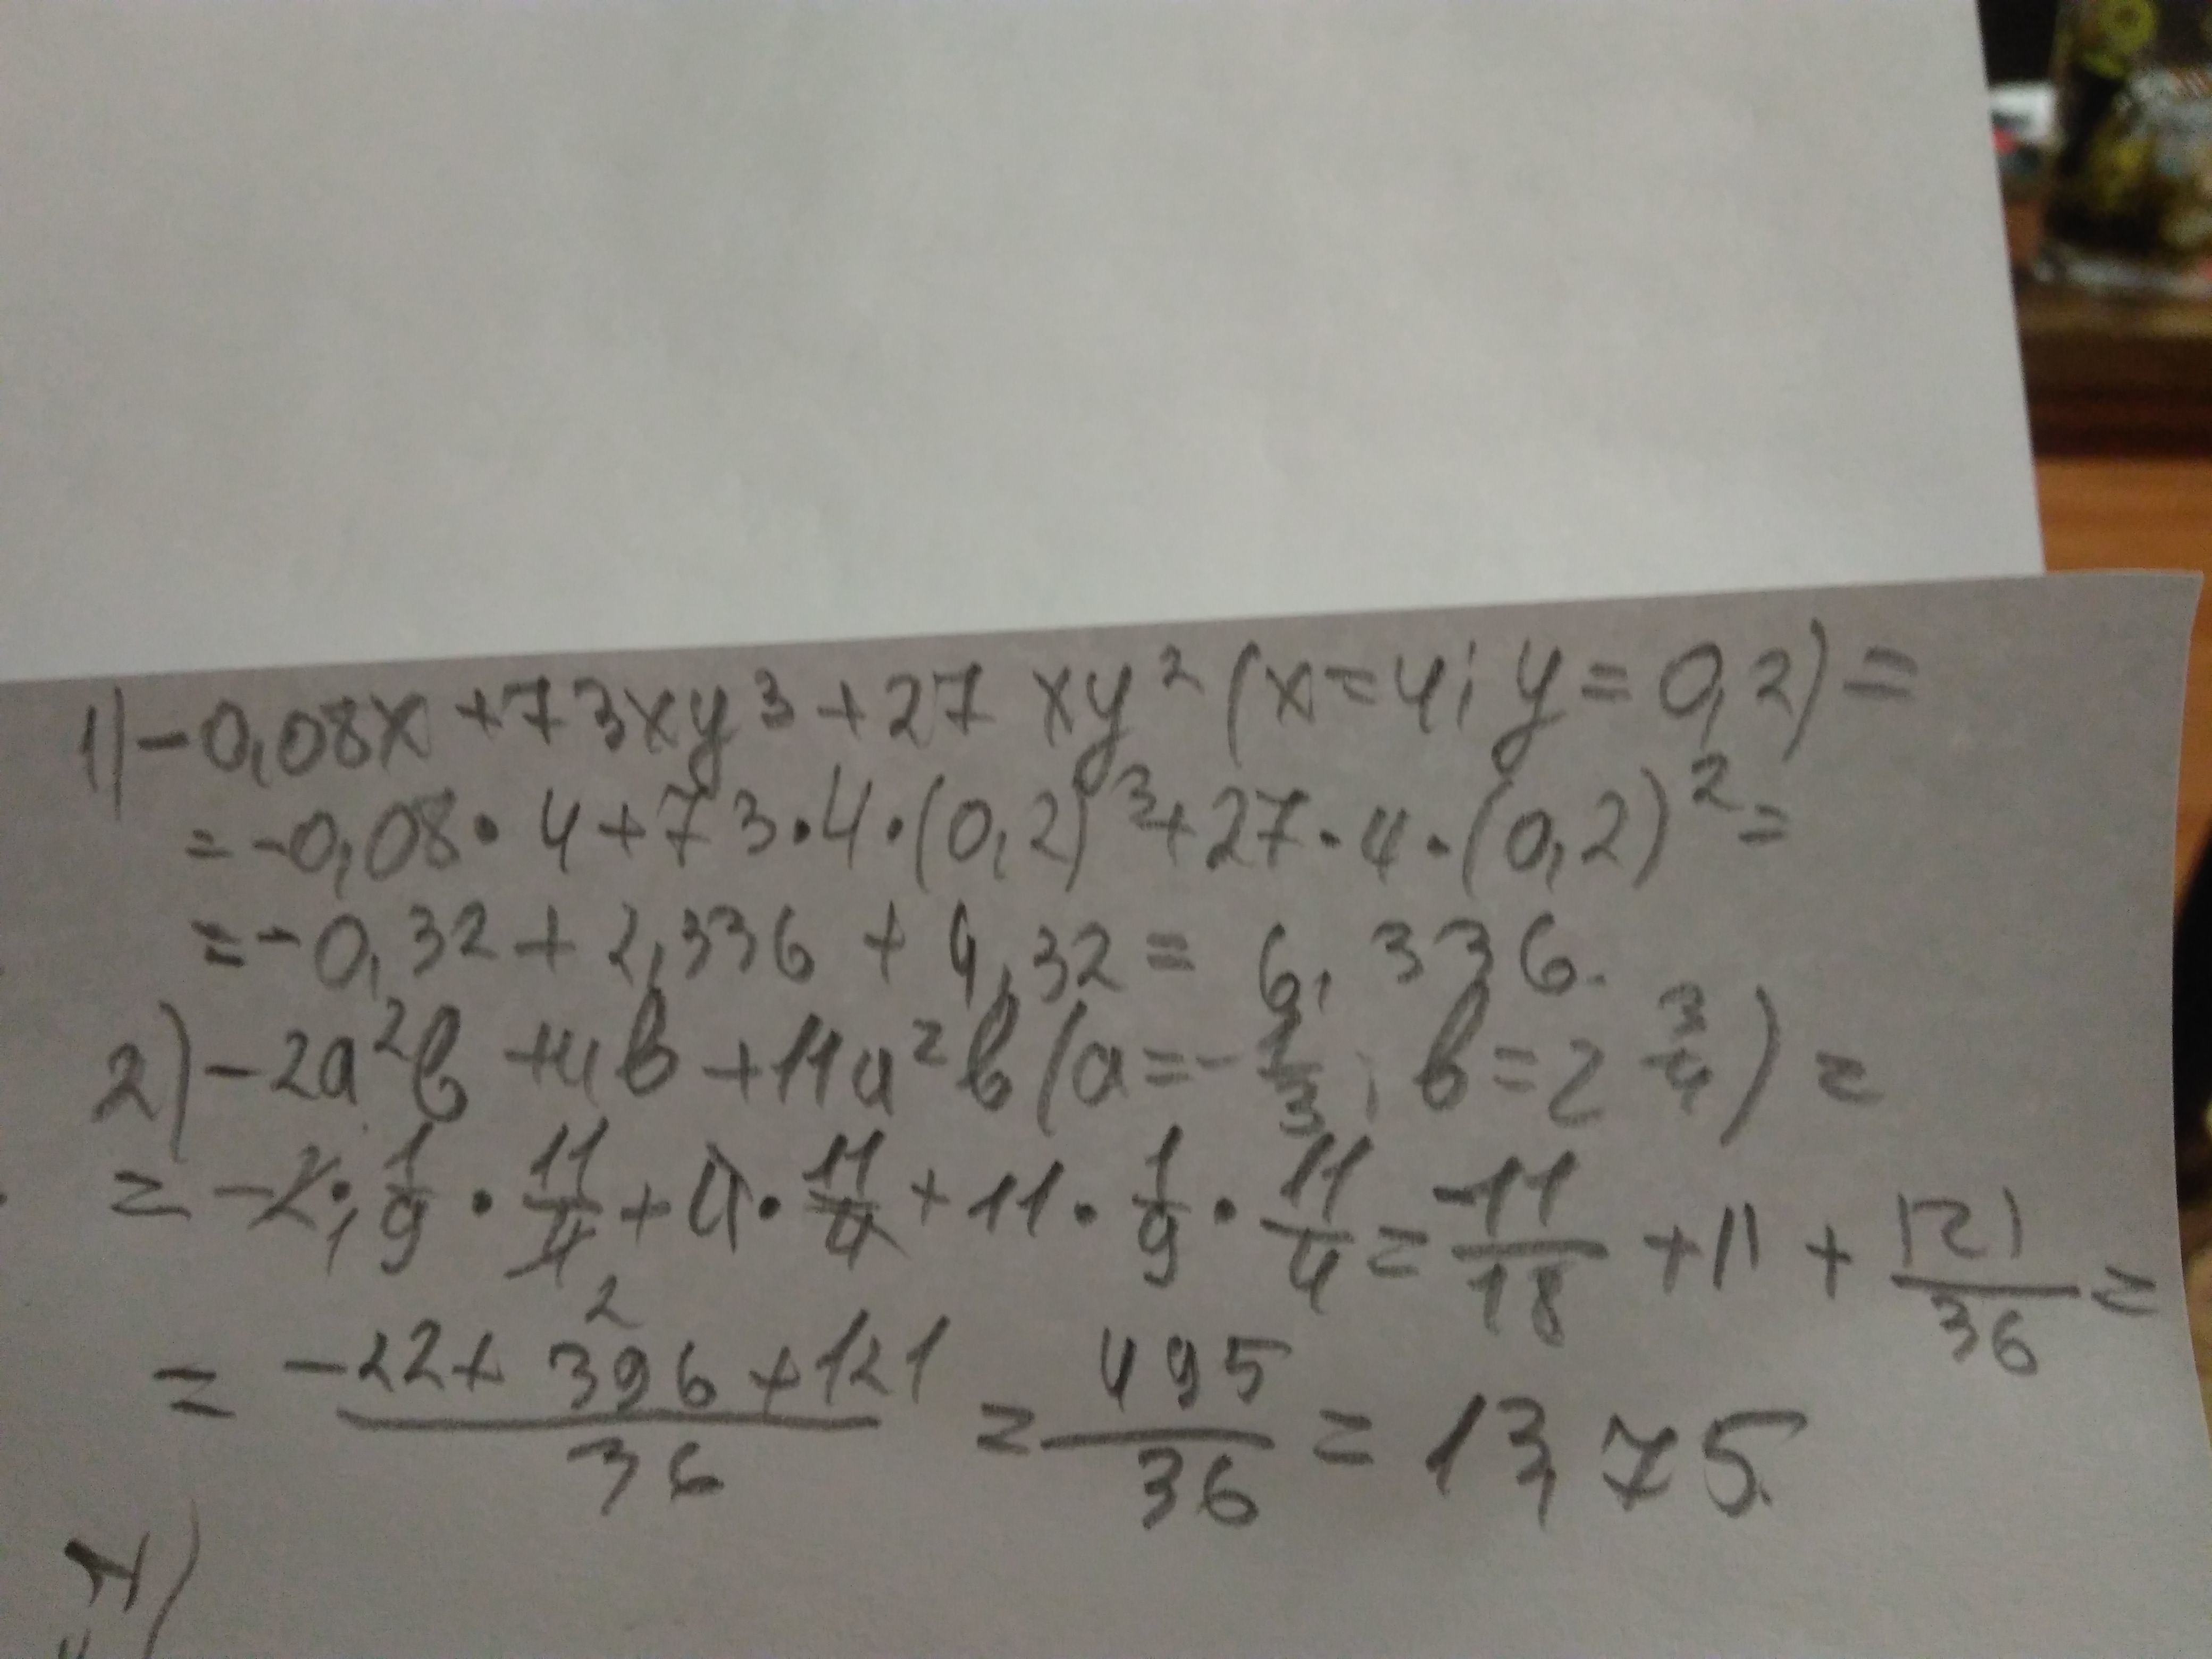 1) -0,08x + 73xy³ + 27 xy² (x = 4; y = 0,2) =
= -0,08 · 4 + 73 · 4 · (0,2)³ + 27 · 4 · (0,2)² =
= -0,32 + 2,336 + 4,32 = 6,336.
2) -2a²b + 4b + 11a²b (a = -1/3; b = 2 3/4) =
= -2 · 1/9 · 11/4 + 4 · 11/4 + 11 · 1/9 · 11/4 = -11/18 + 11 + 121/36 =
= (-22 + 396 + 121)/36 = 495/36 = 13,75.